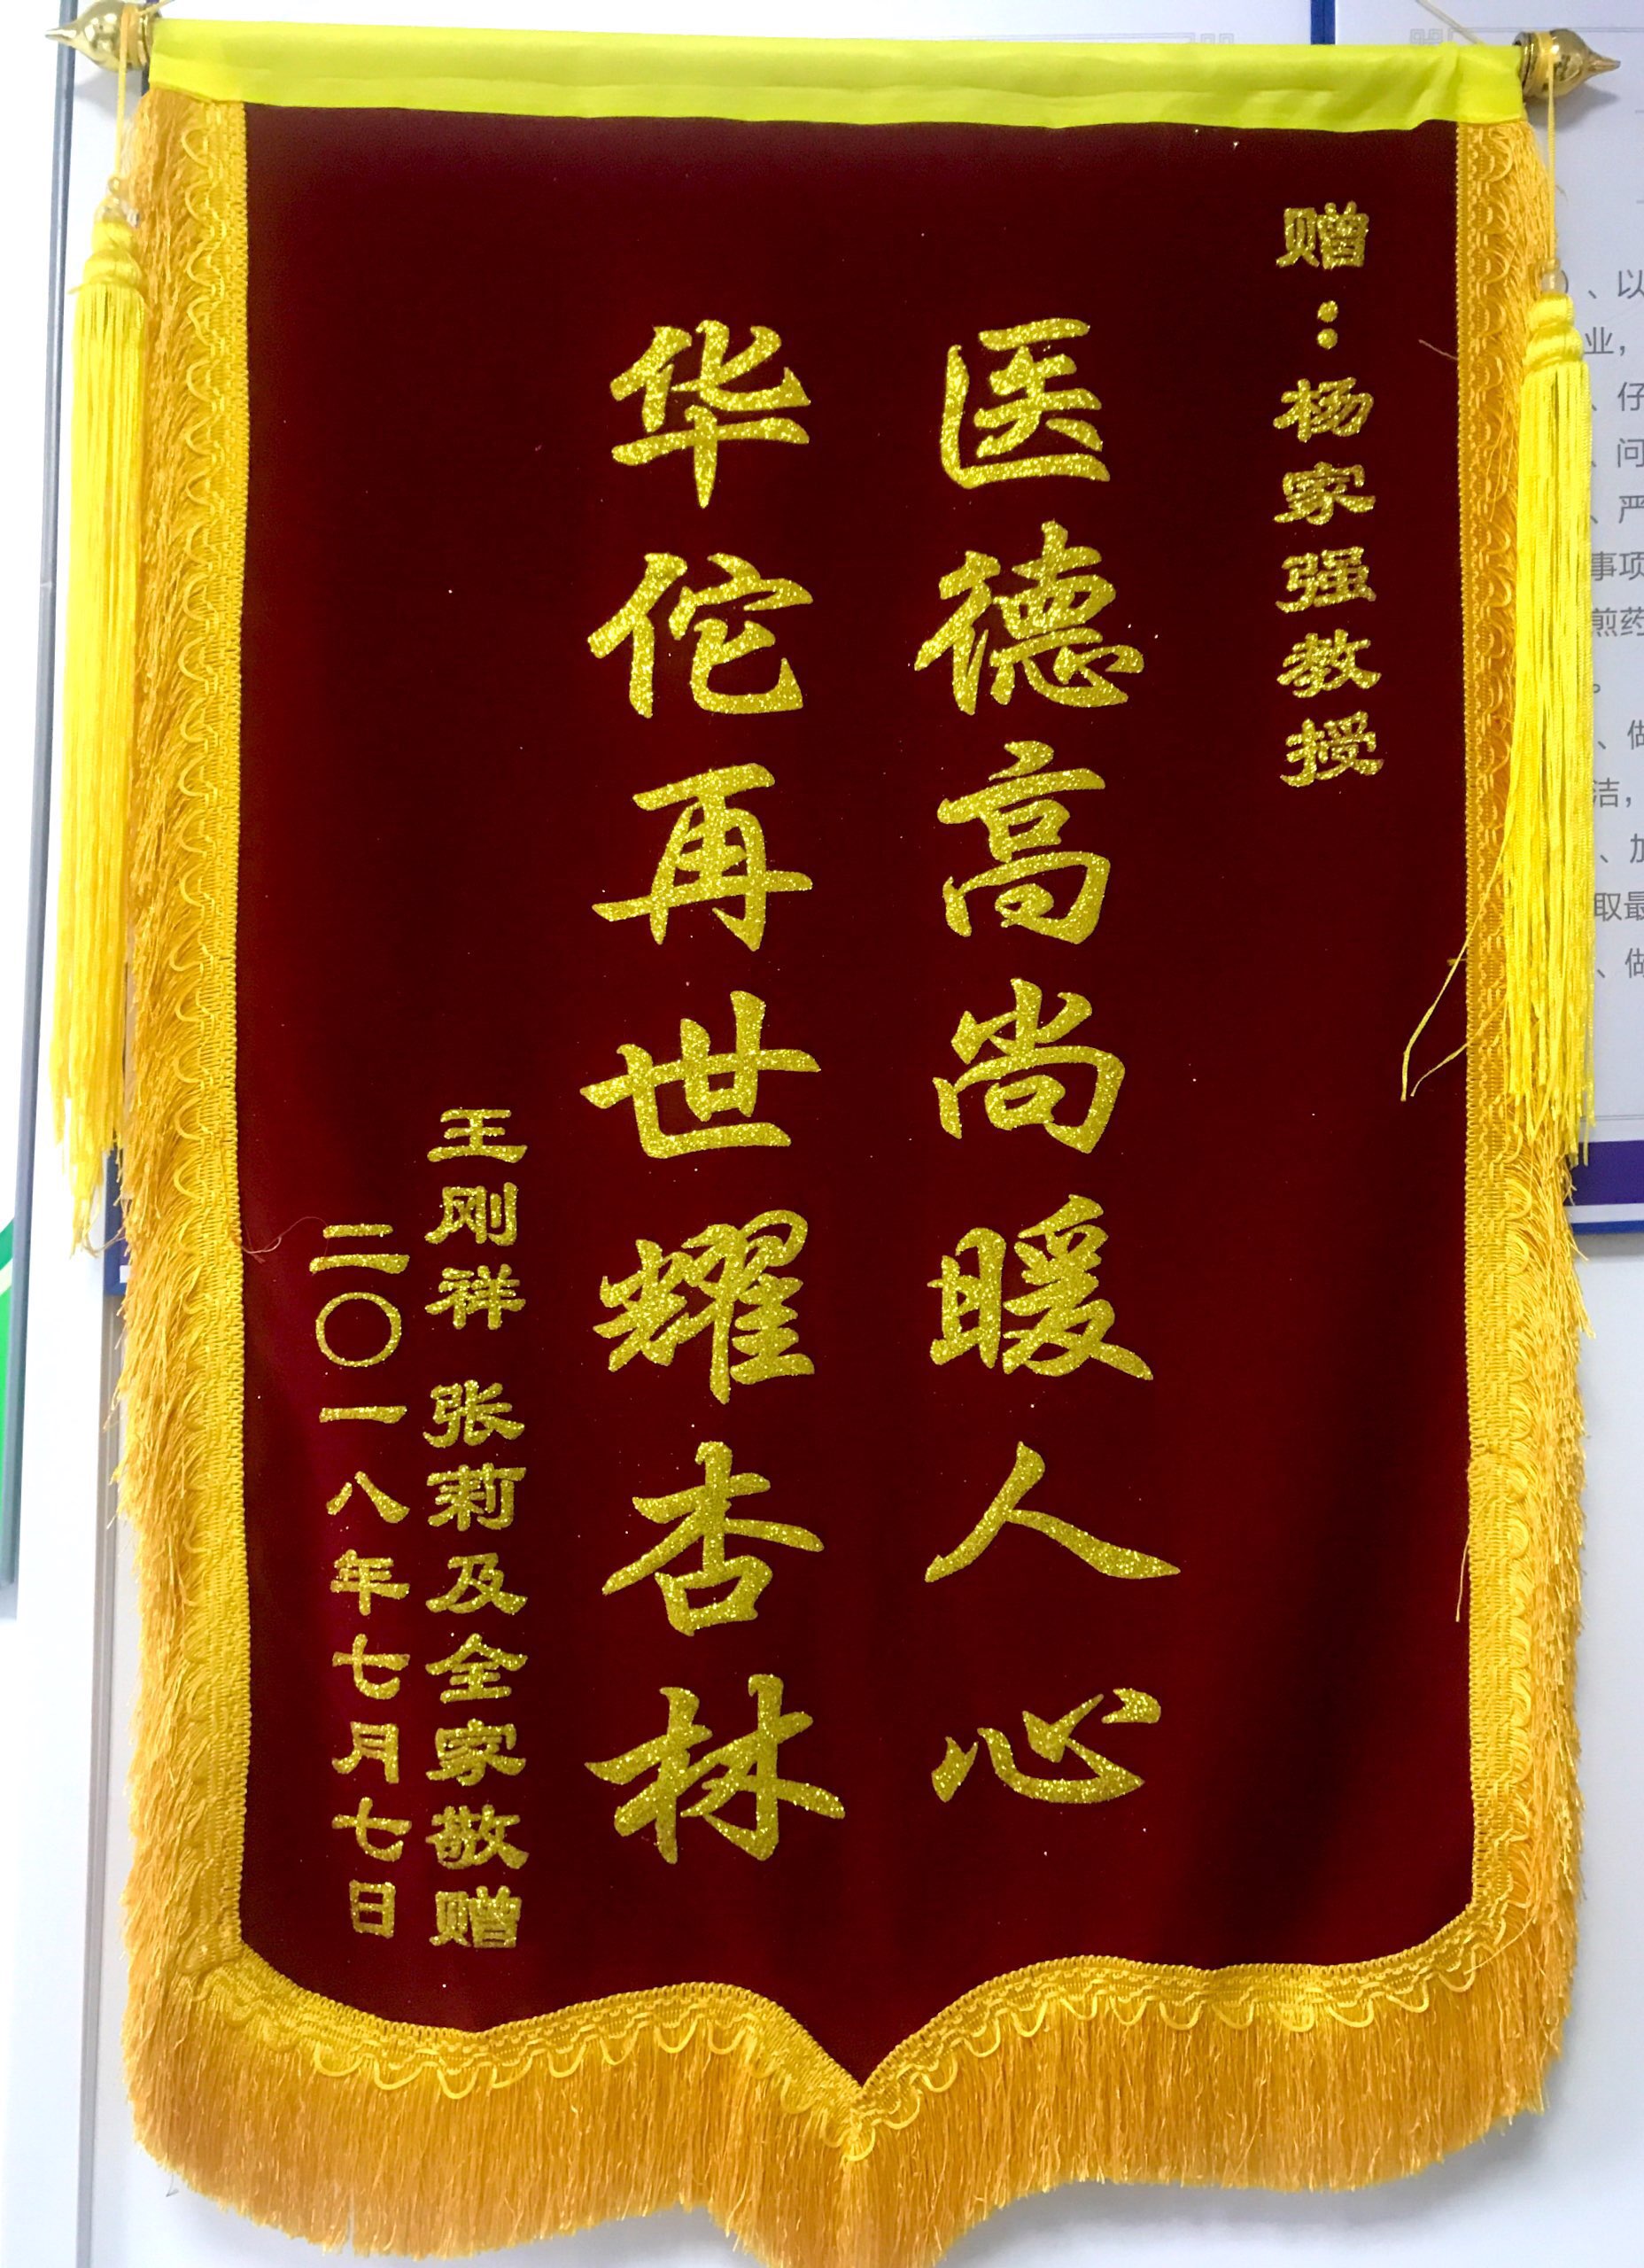 赠：杨家强教授
医德高尚暖人心
华佗再世耀杏林
王刚祥 张莉及全家敬赠
二〇一八年七月七日
、以
业，
、仔
、问
、严
事项
煎药
。
、做
洁，
、加
取最
、做